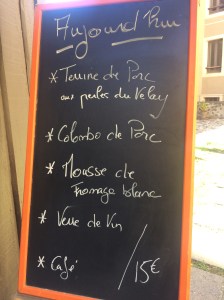 Aujourd'hui
* Terrine de Porc
aux perles du Velay
* Colombo de Porc
* Mousse de
Fromage blanc
* Verre de Vin
* Café /15€